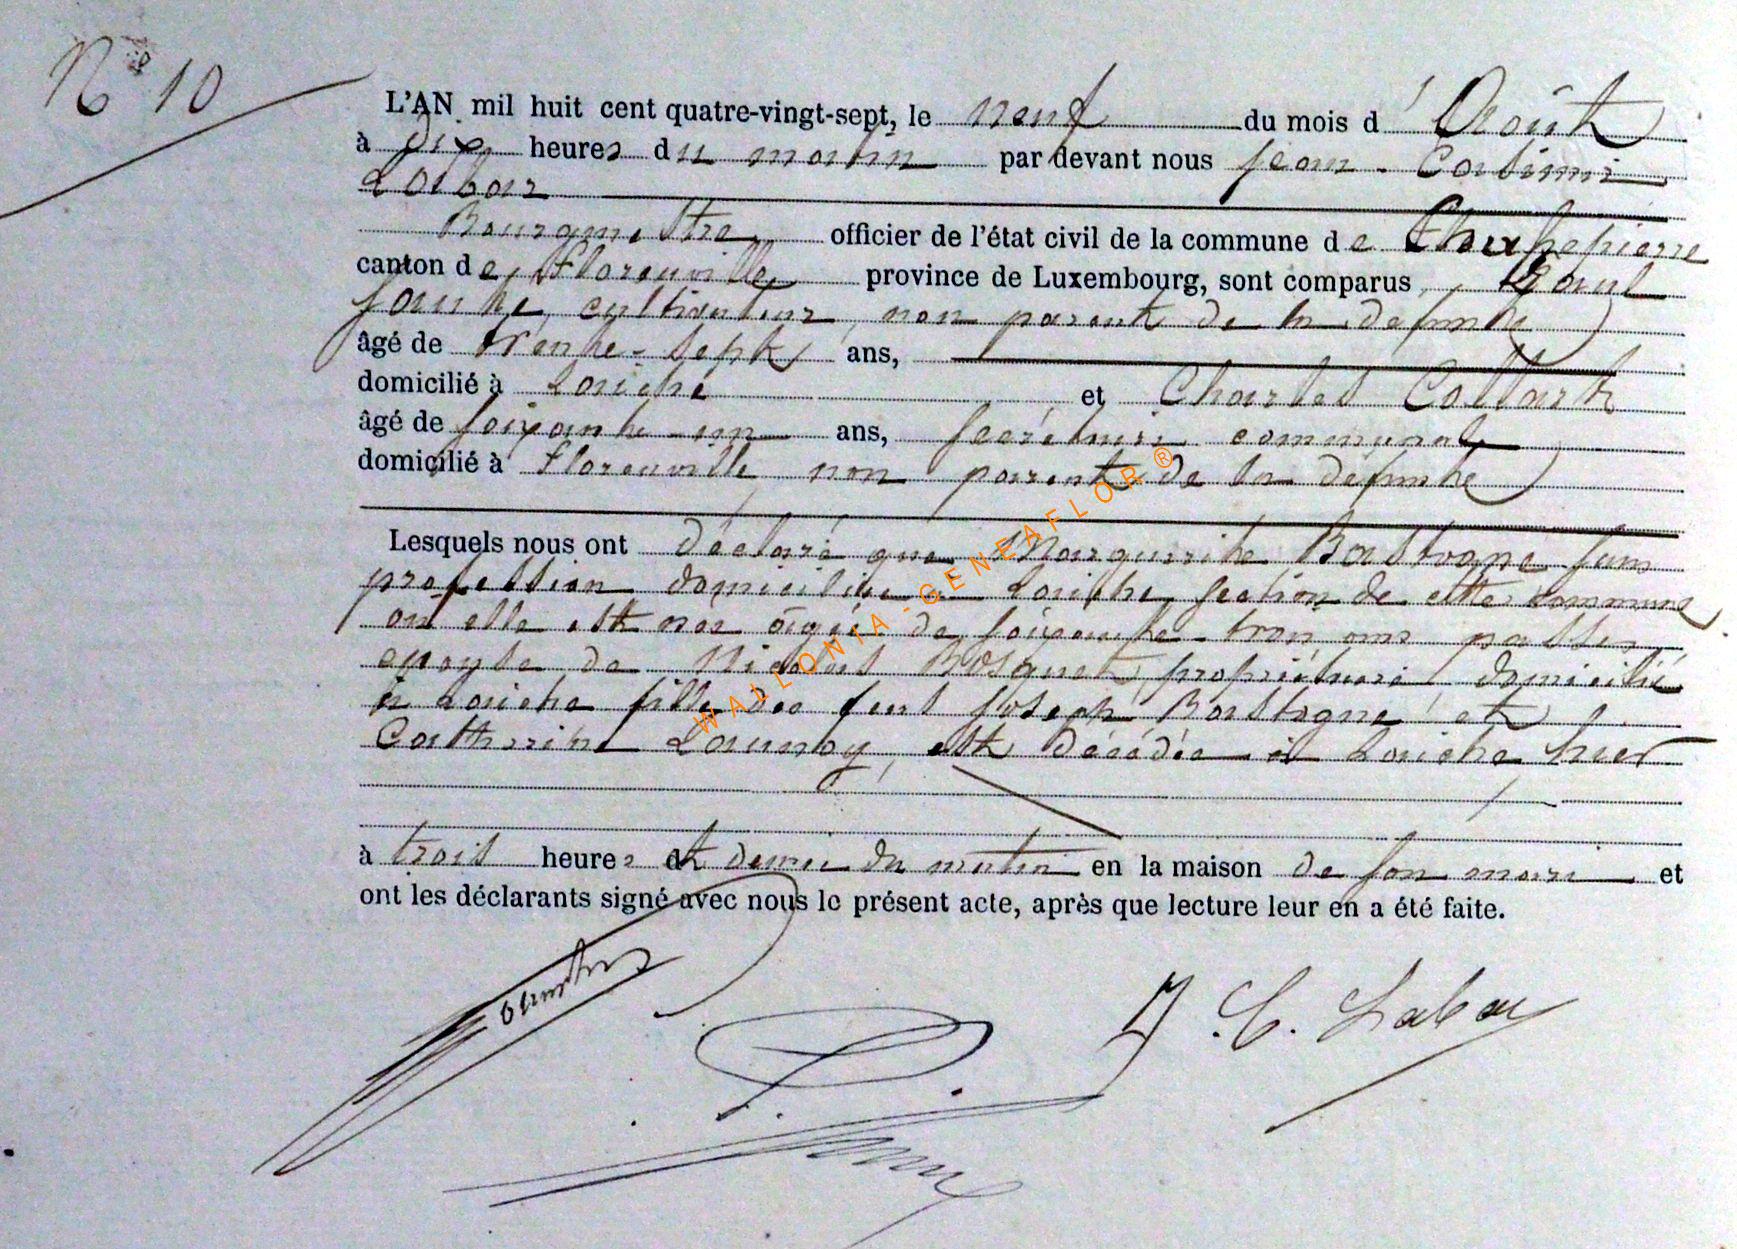 N° 10
L'AN mil huit cent quatre-vingt-sept, le neuf du mois d'Août
à dix heures du matin par devant nous Jean-Casimir
Labar
Bourgmestre officier de l'état civil de la commune de Chassepierre
canton de Florenville province de Luxembourg, sont comparus
cultivateur, non parent de la défunte
âgé de trente-sept ans,
domicilié à Laiche et Charles Collart
âgé de soixante-un ans, secrétaire communal
domicilié à Florenville, non parent de la défunte
Lesquels nous ont déclaré que Marguerite Bastogne sans
profession domiciliée Laiche, section de cette commune
où elle est née âgée de soixante-trois ans passés
épouse de Nicolas Bosquet, propriétaire domicilié
à Laiche fille des feus Joseph Bastogne et
Catherine Launoy, est décédée à Laiche hier
à trois heures et demie du matin en la maison de son mari et
ont les déclarants signé avec nous le présent acte, après que lecture leur en a été faite.
J. C. Labar
WALLONIA-GENEAFLOR ®